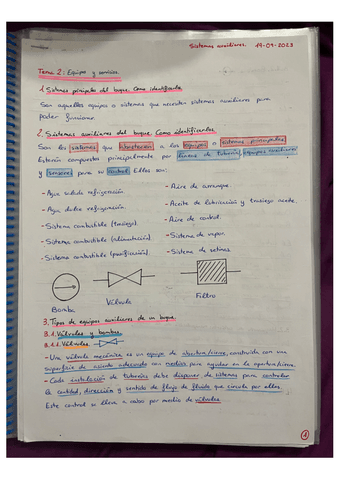 Sistemas auxiliares. 19-09-2023
Tema 2: Equipo y servicios.
1. Sistemas principales del buque. Como identificarlo
Son aquellos equipos o sistemas que necesitan sistemas auxiliares para
poder funcionar.
2. Sistemas auxiliares del buque. Como identificarlos.
Son los sistemas que abastecen a los equipos o sistemas principales
Estarán compuestos principalmente por líneas de tubería, equipos auxiliares
y sensores para su control. Ellos son:
- Agua salada refrigeración.
- Agua dulce refrigeración.
- Sistema combustible (trasiego).
- Sistema combustible (alimentación).
- Sistema combustible (purificación).
- Aire de arranque.
- Aceite de lubricación y trasiego aceite.
- Aire de control.
- Sistema de vapor.
- Sistema de sentinas.
Bomba
Válvula
Filtro
3. Tipos de equipos auxiliares de un buque.
3.1. Válvulas y bombas.
3.1.1. Válvulas.
- Una válvula mecánica es un equipo de abertura/cierre, construida con una
superficie de asiento adecuada con medios para ayudar en la apertura/cierre.
- Cada instalación de tuberías debe disponer de sistemas para controlar
la cantidad, dirección y sentido de flujo de fluido que circula por ellas.
Este control se lleva a cabo por medio de válvulas.
1